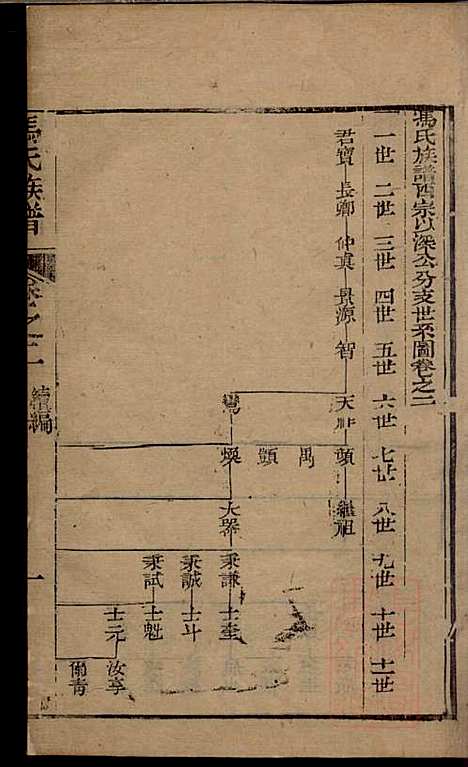 馮氏族譜酉宗以深公分支世系圖卷之二
一世 二世 三世 四世 五世 六世 七世 八世 九世 十世 十一世
君寶 長卿 仲真 景源 智 天 頭 繼祖
禺
顗
鸞 煥 大器 秉謙 士奎
秉誠 士斗
秉試 士魁
士元 汝亭
爾青
馮氏族譜 卷之二 續編 一